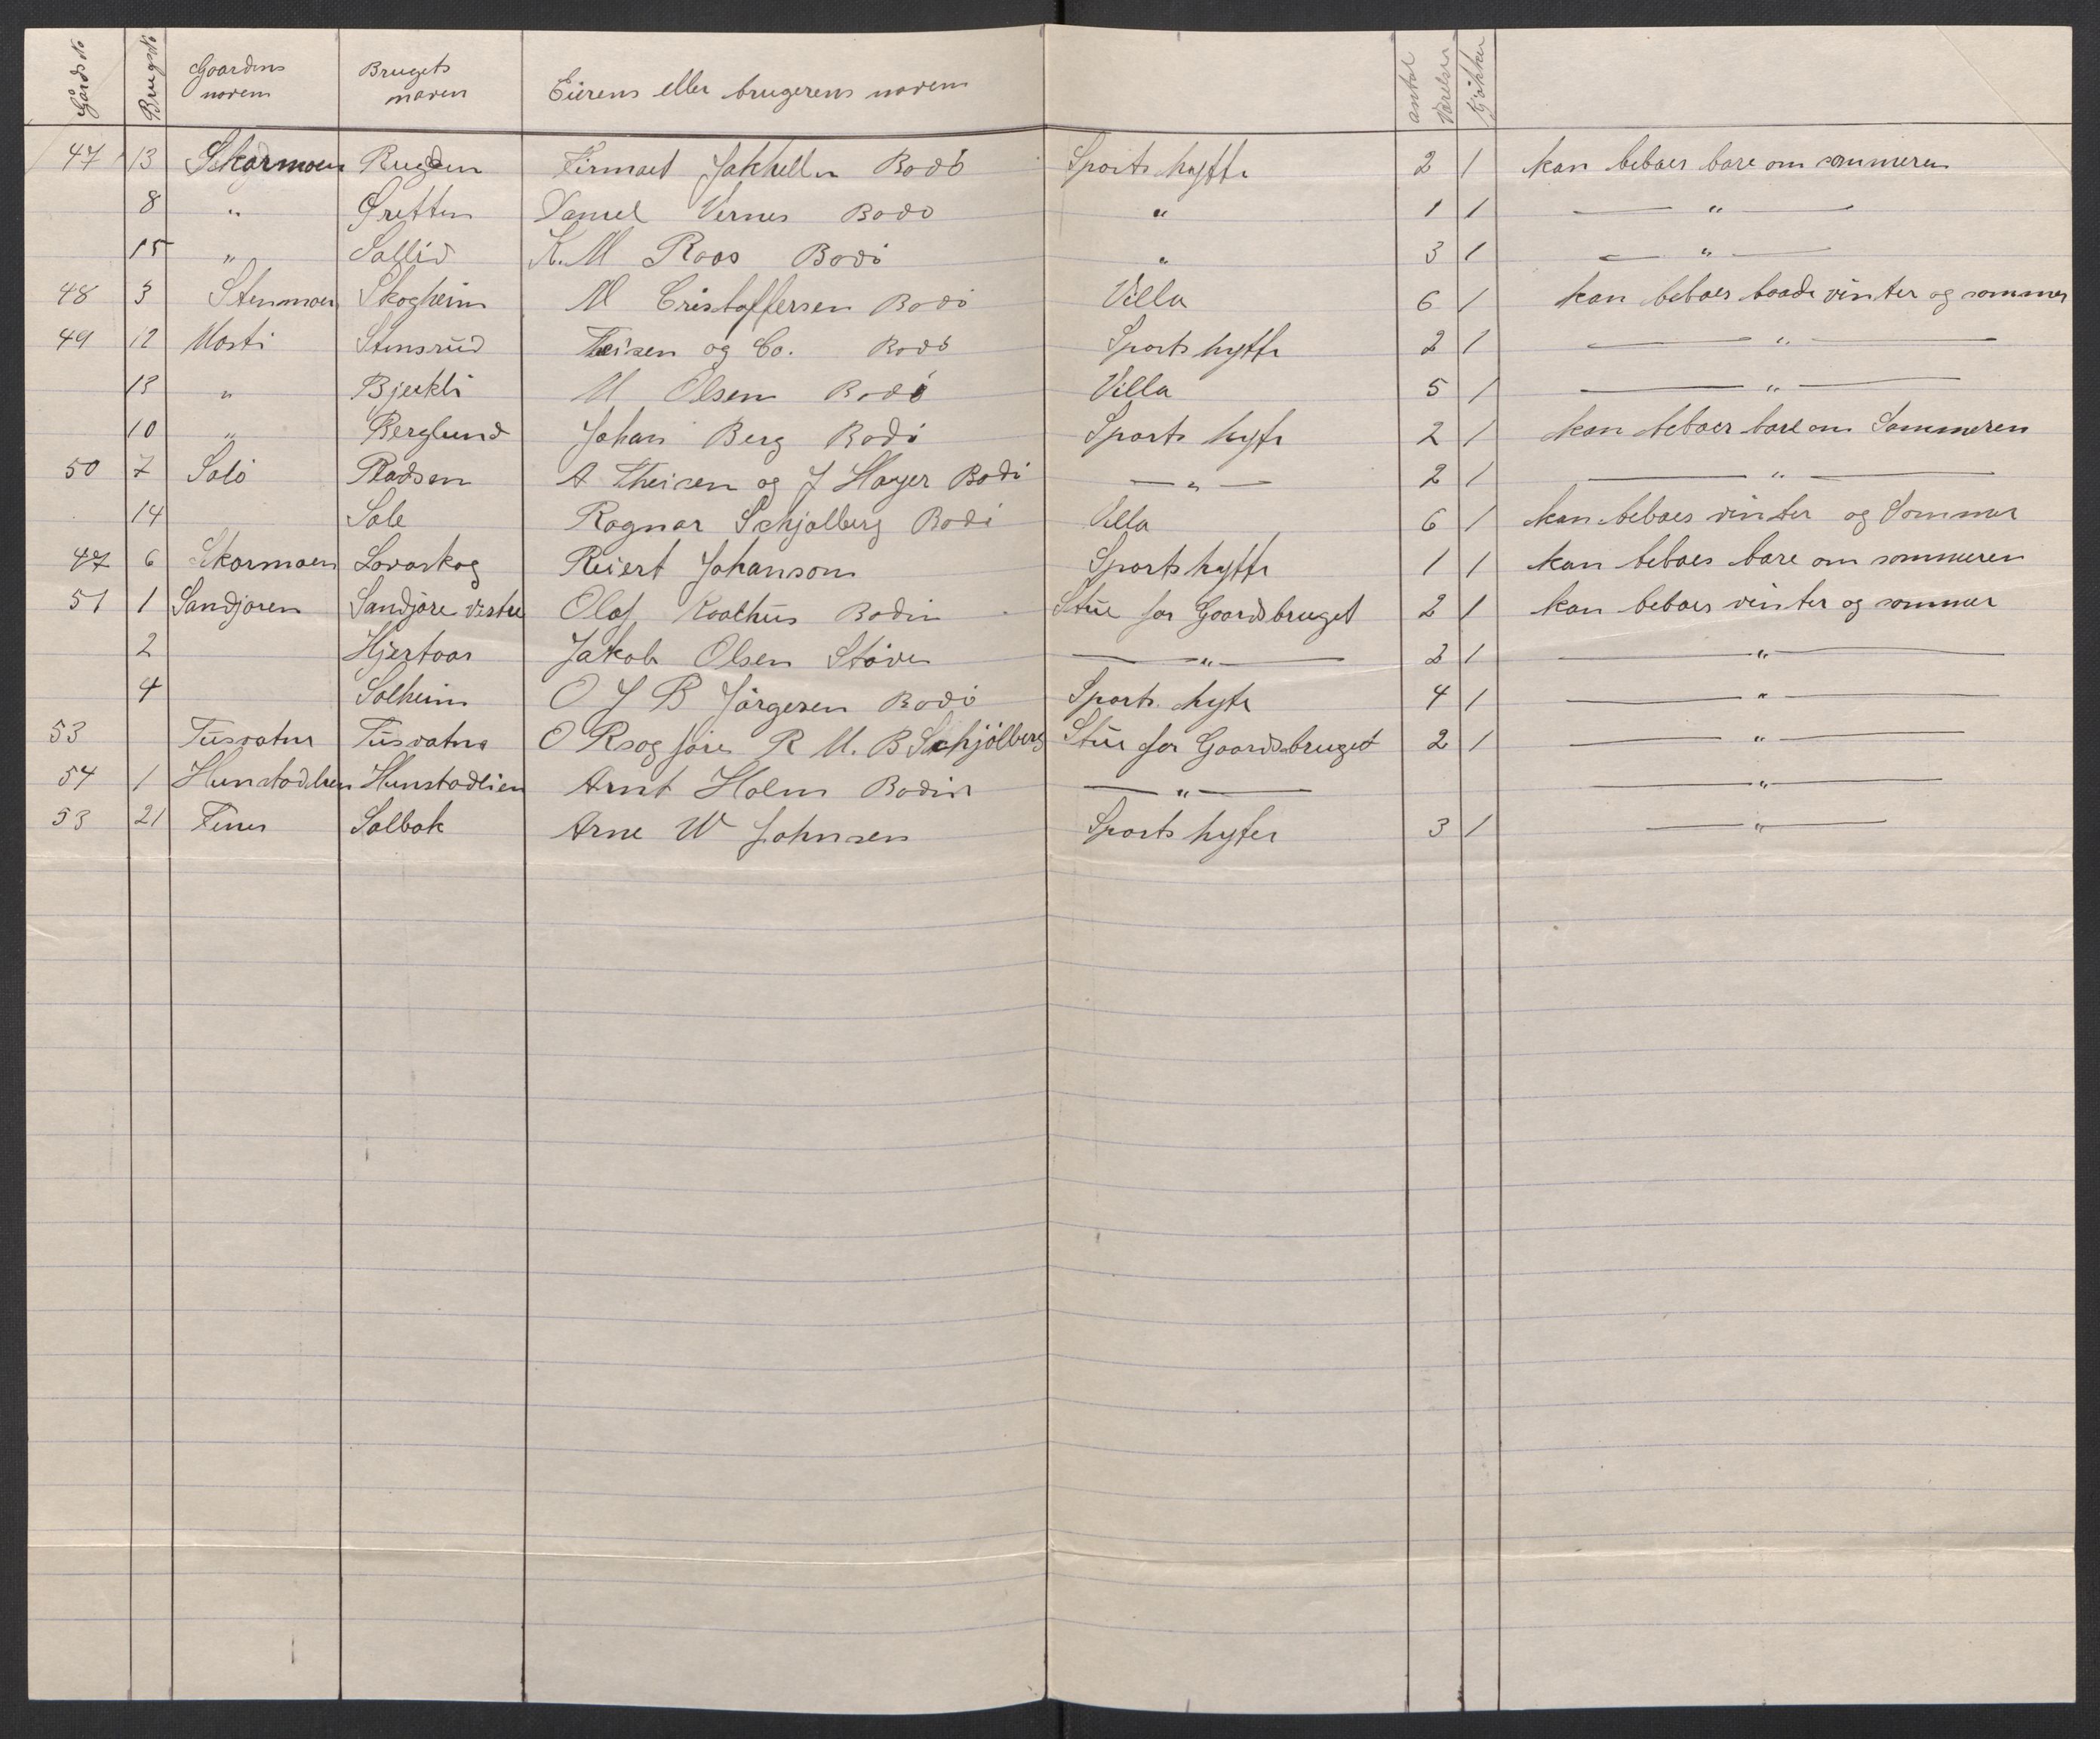 Gårds No | Brugs No | Gaardens navem | Brugets naven | Eierens eller brugerens navem | | antal Værelser | Kjøkken |
47 | 13 | Skarmoen | Rugden | Firmaet Jakhelln Bodö | Sports hytte | 2 | 1 | kan beboes bare om sommeren
8 | " | Gretten | Daniel Vernes Bodö | " | 1 | 1 | — " —
15 | " | Sollid | K. M Roos Bodö | " | 3 | 1 | — " —
48 | 3 | Stenmoen | Skogheim | M Cristoffersen Bodö | Villa | 6 | 1 | kan beboes baade vinter og sommer
49 | 12 | Mosti | Stensrud | Theisen og Co. Bodö | Sports hytte | 2 | 1 | — " —
13 | " | Bjerkli | M Olsen Bodö | Villa | 5 | 1 | — " —
10 | " | Berglund | Johan Berg Bodö | Sports hyte | 2 | 1 | kan beboes bare om Sommeren
50 | 7 | Solö | Pladsen | A Theisen og J Hayer Bodö | — " — | 2 | 1 | — " —
14 | Sole | Ragnar Schjølberg Bodö | Villa | 6 | 1 | kan beboes vinter og Sommer
47 | 6 | Skarmoen | Lovaskog | Reiert Johanson | Sports hytte | 1 | 1 | kan beboes bare om sommeren
51 | 1 | Sandjoren | Sandjore vestre | Olaf Koolhus Bodin | Stue for Gaardsbruget | 2 | 1 | kan beboes vinter og sommer
2 | Hjertoas | Jakob Olsen Støver | — " — | 2 | 1 | — " —
4 | Solheim | O J B Jörgesen Bodö | Sports hyte | 4 | 1 | — " —
53 | Tusvatne | Tusvatne | R M. B Schjölberg | Stue for Gaardsbruget | 2 | 1 | — " —
54 | 1 | Hunstadlien | Hunstadlien | Arnt Holm Bodin | — " — | — " —
53 | 21 | Fenes | Solbak | Arne W Johnsen | Sports hyter | 3 | 1 | — " —